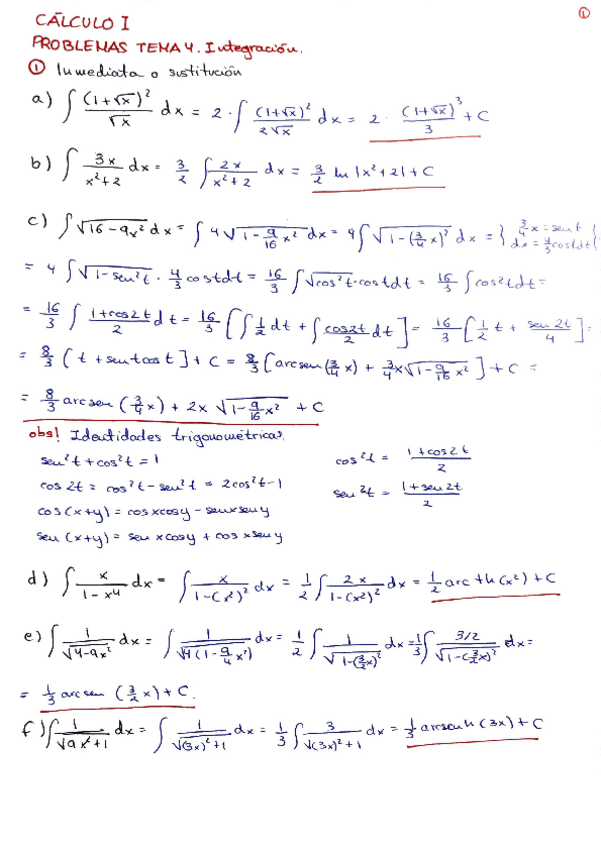 ①
CÁLCULO I
PROBLEMAS TEMA 4. Integración.
① Inmediata o sustitución
a) ∫ (1+√x)²/√x dx = 2 · ∫ (1+√x)²/2√x dx = 2 · (1+√x)³/3 + C
b) ∫ 3x/x²+2 dx = 3/2 ∫ 2x/x²+2 dx = 3/2 ln |x²+2| + C
c) ∫ √16-9x² dx = ∫ 4√1-9/16 x² dx = 4 ∫ √1-(3/4 x)² dx = { 3/4 x = sen t dx = 4/3 cos t dt {
= 4 ∫ √1-sen²t · 4/3 cos t dt = 16/3 ∫ √cos²t · cos t dt = 16/3 ∫ cos²t dt =
= 16/3 ∫ 1+cos2t/2 dt = 16/3 [ ∫ 1/2 dt + ∫ cos2t/2 dt ] = 16/3 [ 1/2 t + sen 2t/4 ] =
= 8/3 ( t + sen t cos t ] + C = 8/3 [ arcsen (3/4 x) + 3/4 x √1-9/16 x² ] + C =
= 8/3 arcsen (3/4 x) + 2x √1-9/16 x² + C
obs! Identidades trigonométricas.
sen²t + cos²t = 1
cos²t = 1+cos2t/2
cos 2t = cos²t - sen²t = 2cos²t-1
sen²t = 1+sen2t/2
cos(x+y) = cosxcosy - senxseny
sen(x+y) = senxcosy + cosxseny
d) ∫ x/1-x⁴ dx = ∫ x/1-(x²)² dx = 1/2 ∫ 2x/1-(x²)² dx = 1/2 arc th(x²) + C
e) ∫ 1/√4-9x² dx = ∫ 1/√4(1-9/4 x²) dx = 1/2 ∫ 1/√1-(3/2 x)² dx = 1/3 ∫ 3/2/√1-(3/2 x)² dx =
= 1/3 arcsen (3/2 x) + C.
f) ∫ 1/√9x²+1 dx = ∫ 1/√(3x)²+1 dx = 1/3 ∫ 3/√(3x)²+1 dx = 1/3 arcsenh (3x) + C